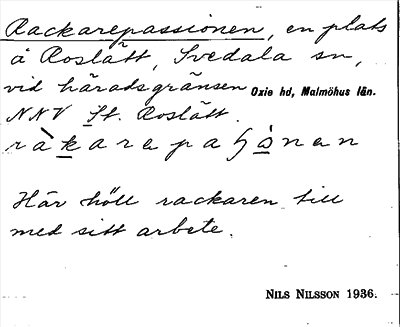 Rackarepassionen, en plats
å Roslätt, Svedala sn,
vid häradsgränsen Oxie hd, Malmöhus län.
NNV St. Roslätt.
ràkarepaʃònen
Här höll rackaren till
med sitt arbete.
NILS NILSSON 1936.